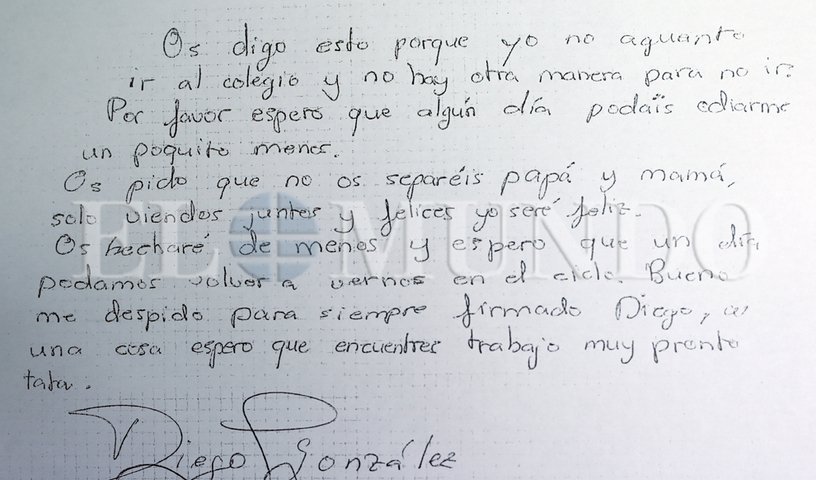 Os digo esto porque yo no aguanto
ir al colegio y no hay otra manera para no ir.
Por favor espero que algún día podáis odiarme
un poquito menos.
Os pido que no os separéis papá y mamá,
solo viendos juntos y felices yo seré feliz.
Os hecharé de menos y espero que un día
podamos volver a vernos en el cielo. Bueno
me despido para siempre firmado Diego,
una cosa espero que encuentres trabajo muy pronto
tata.
Diego González
EL MUNDO